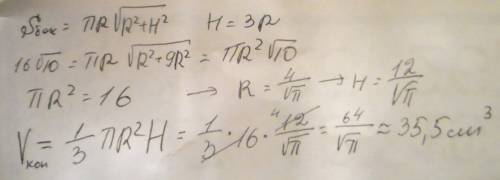 Sбок = πR√(R²+H²)   H = 3R
16√10 = πR √(R²+9R²) = πR²√10
πR² = 16 → R = 4/√π → H = 12/√π
Vкон = 1/3 πR²H = 1/3 · 16 · ⁴12/√π = 64/√π ≈ 35,5 см³